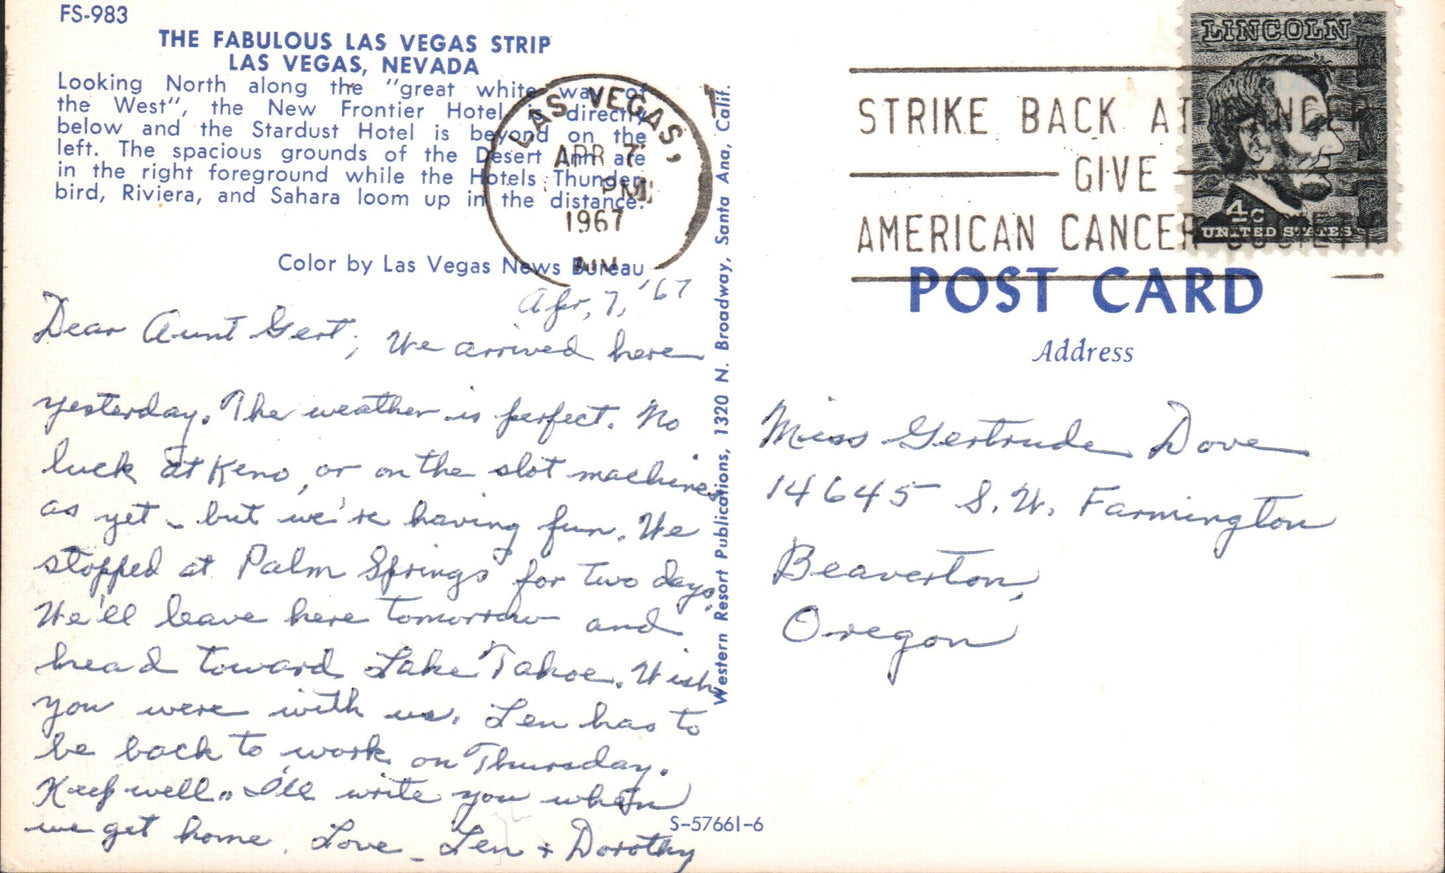 FS-983
THE FABULOUS LAS VEGAS STRIP
LAS VEGAS, NEVADA
Looking North along the "great white way of
the West", the New Frontier Hotel is directly
below and the Stardust Hotel is beyond on the
left. The spacious grounds of the Desert Inn are
in the right foreground while the Hotels Thunder-
bird, Riviera, and Sahara loom up in the distance.
Color by Las Vegas News Bureau
LAS VEGAS,
APR 7
PM
1967
Apr, 7, '67
Dear Aunt Gert, We arrived here
yesterday. The weather is perfect. No
luck at Keno, or on the slot machines
as yet - but we're having fun. We
stopped at Palm Springs for two days.
We'll leave here tomorrow and
head toward Lake Tahoe. Wish
you were with us. Len has to
be back to work on Thursday.
Keep well. I'll write you when
we get home. Love - Len + Dorothy
S-57661-6
Western Resort Publications, 1320 N. Broadway, Santa Ana, Calif.
STRIKE BACK AT CANCER
GIVE
AMERICAN CANCER SOCIETY
LINCOLN
4c
UNITED STATES
POST CARD
Address
Miss Gertrude Dove
14645 S.W. Farmington
Beaverton,
Oregon